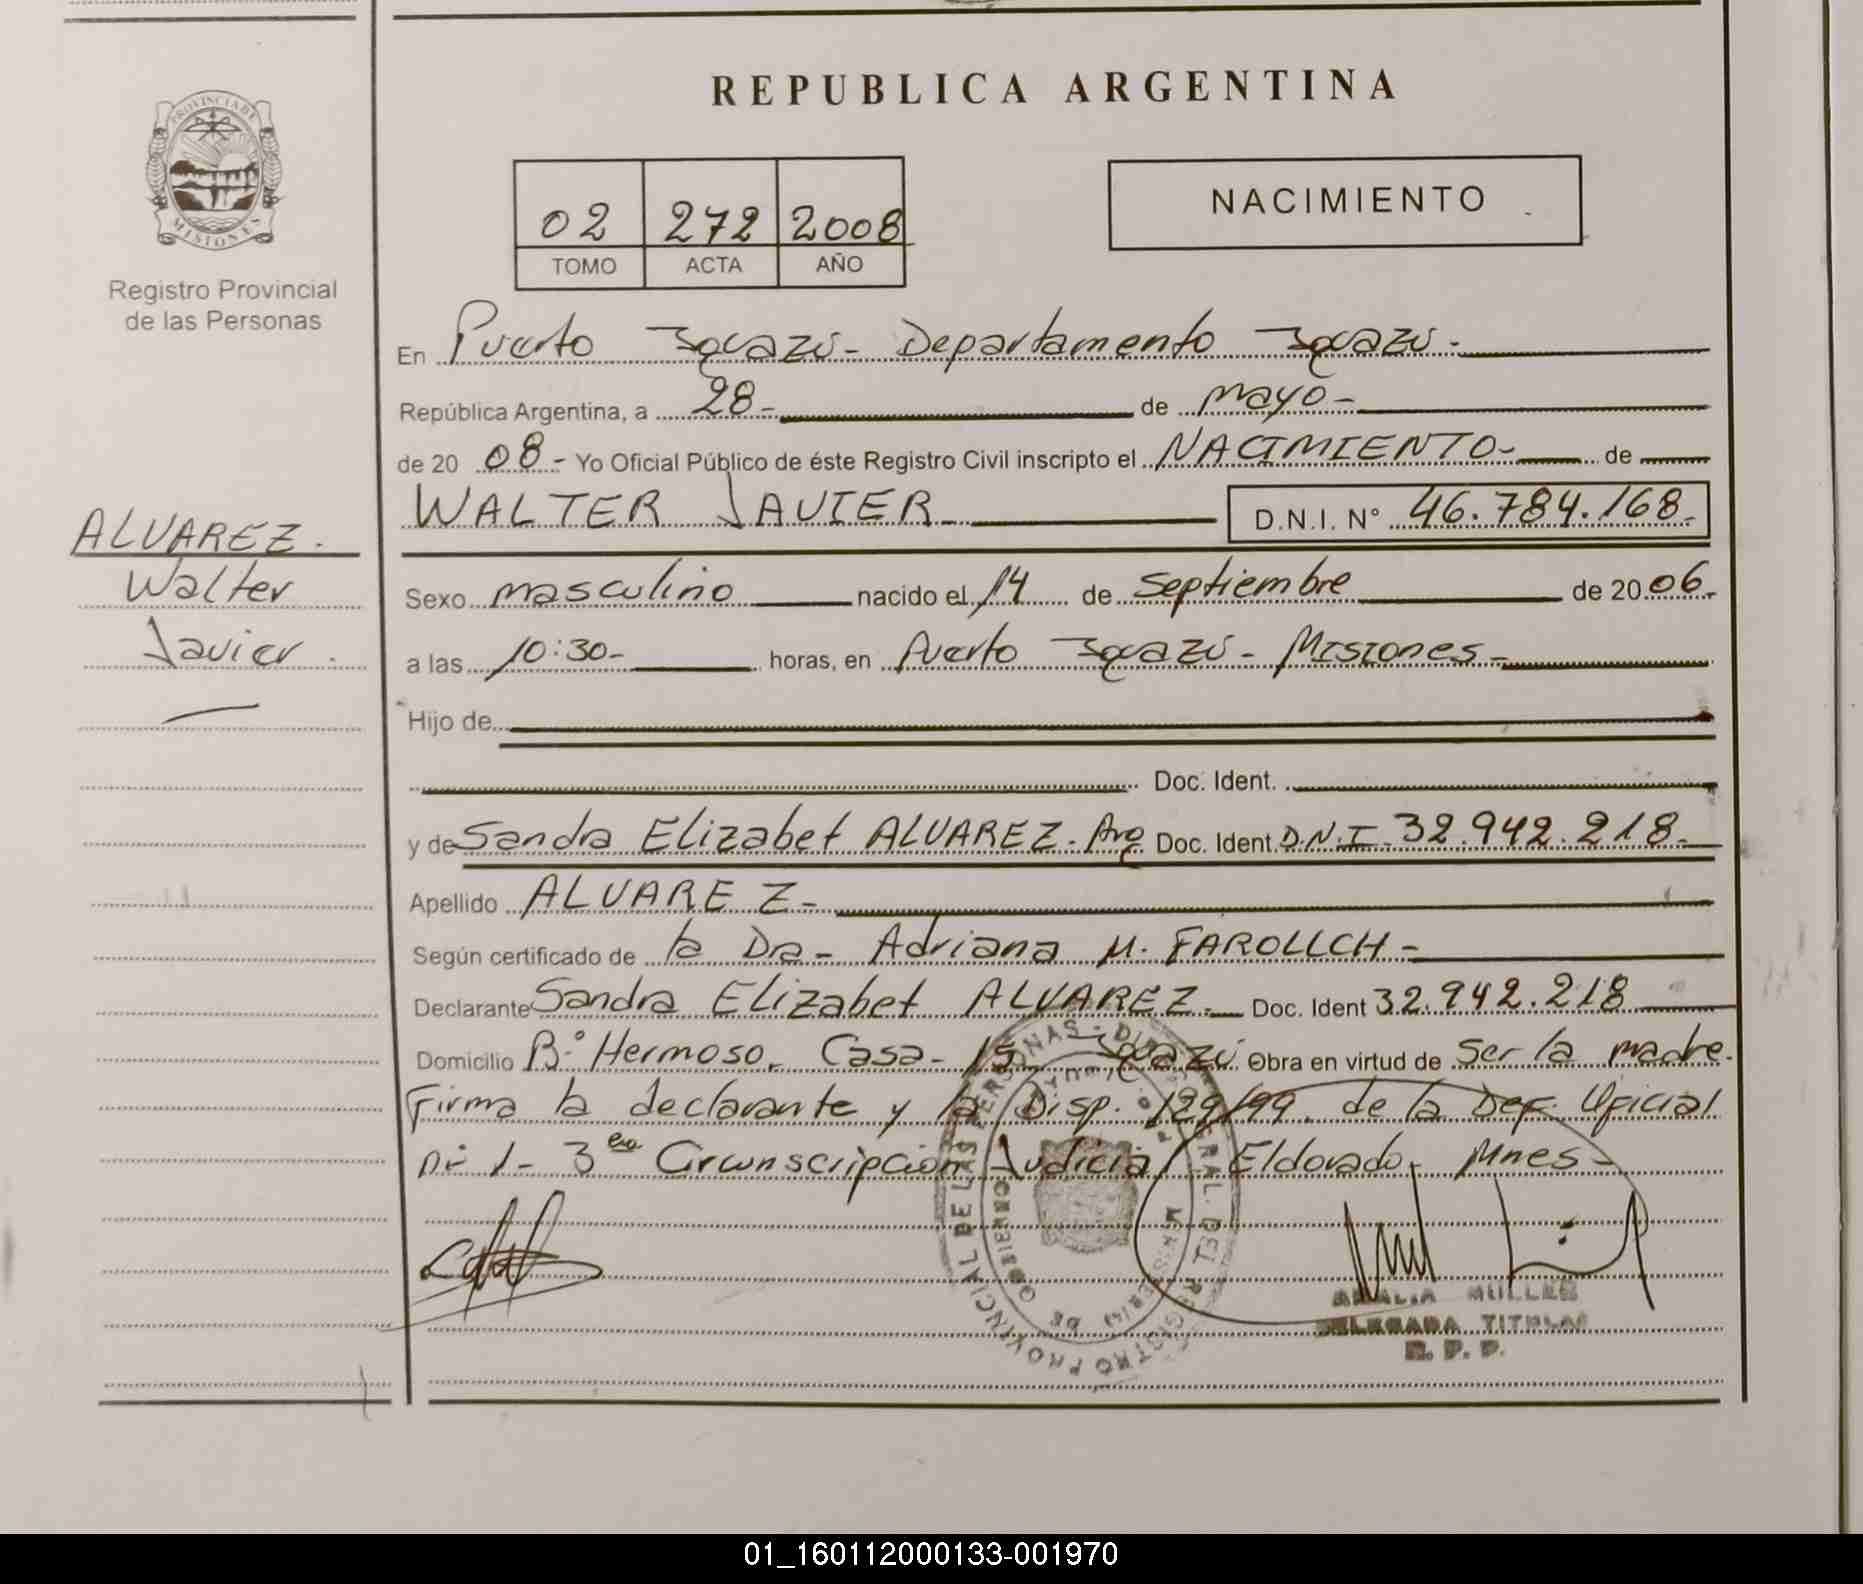 REPUBLICA ARGENTINA
PROVINCIA DE
MISIONES
Registro Provincial
de las Personas
02 272 2008
TOMO ACTA AÑO
NACIMIENTO
En Puerto Iguazú - Departamento Iguazú -
República Argentina, a 28 - de mayo -
de 20 08 - Yo Oficial Público de éste Registro Civil inscripto el NACIMIENTO - de
WALTER JAVIER - D.N.I. N° 46.784.168 -
ALVAREZ.
Walter
Javier
Sexo masculino nacido el 14 de Septiembre de 20 06 -
a las 10:30 - horas, en Puerto Iguazú - Misiones -
Hijo de
Doc. Ident.
y de Sandra Elizabet ALVAREZ - Arg Doc. Ident. D.N.I. 32.942.218 -
Apellido ALVAREZ -
Según certificado de la Dra - Adriana M. FAROLLCH -
Declarante Sandra Elizabet ALVAREZ - Doc. Ident 32.942.218
Domicilio B° Hermoso - Casa - 15 - Iguazú Obra en virtud de ser la madre -
Firma la declarante y la Disp. 129/99 de la Def. Oficial
N° 1 - 3era Circunscripción Judicial Eldorado - Mnes -
REGISTRO PROVINCIAL DE LAS PERSONAS
AMALIA MULLER
DELEGADA TITULAR
R. P. P.
01_160112000133-001970